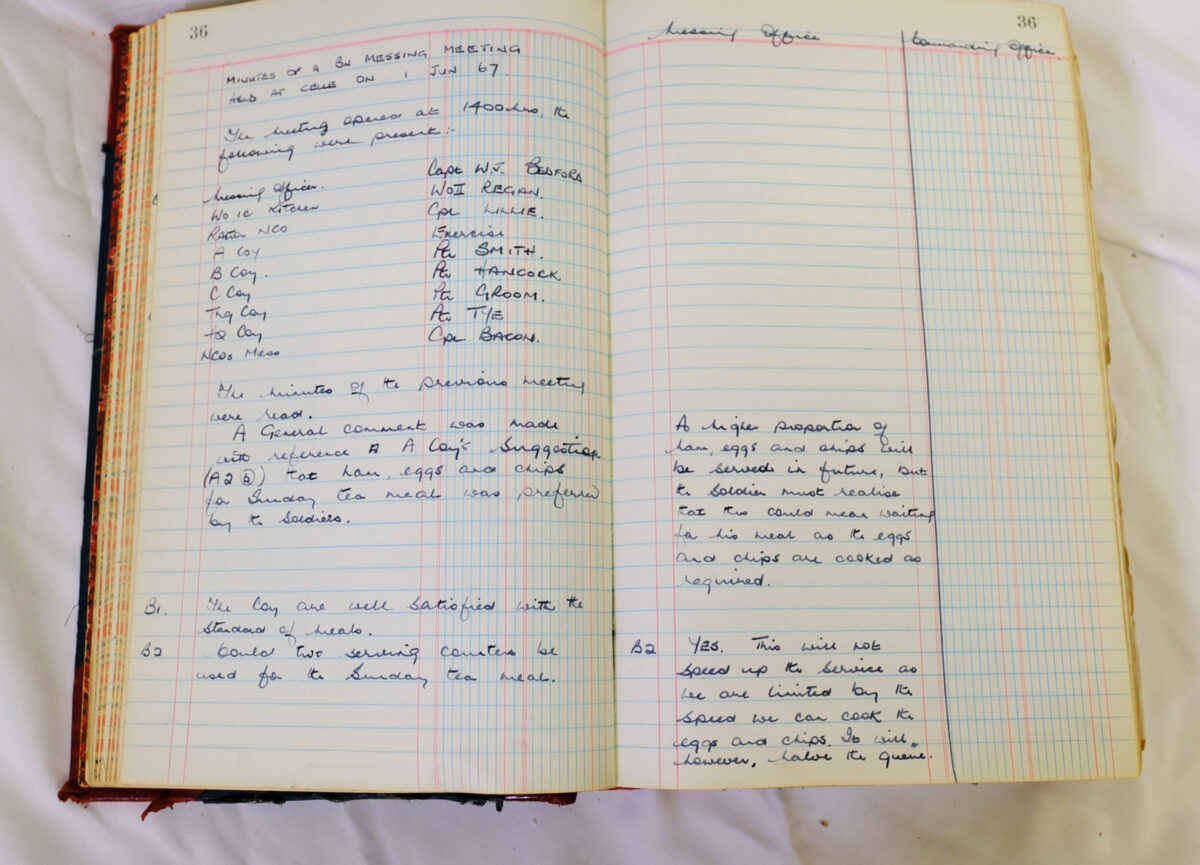 36
MINUTES OF A BN MESSING MEETING
HELD AT CELLE ON 1 JUN 67.
The meeting opened at 1400hrs, the
following were present:-
Messing Officer. Capt W.J. BEDFORD
WO ic Kitchen WOII REGAN.
Ration NCO Cpl LILLIE.
A Coy Exercise
B Coy. Pte SMITH.
C Coy Pte HANCOCK
Trg Coy Pte GROOM.
HQ Coy Pte TYE
NCOs Mess Cpl BACON.
The minutes of the previous meeting
were read.
A General comment was made
with reference to A Coy's Suggestion
(A2 b) that ham, eggs and chips
for Sunday tea meal was preferred
by the Soldiers.
B1. The Coy are well satisfied with the
standard of meals.
B2 Could two serving counters be
used for the Sunday tea meal.
36
Messing Officer Commanding Officer
A higher proportion of
ham, eggs and chips will
be served in future, but
the Soldier must realise
that this could mean waiting
for his meal as the eggs
and chips are cooked as
required.
B2 YES. This will not
speed up the service as
we are limited by the
speed we can cook the
eggs and chips. It will,
however, halve the queue.